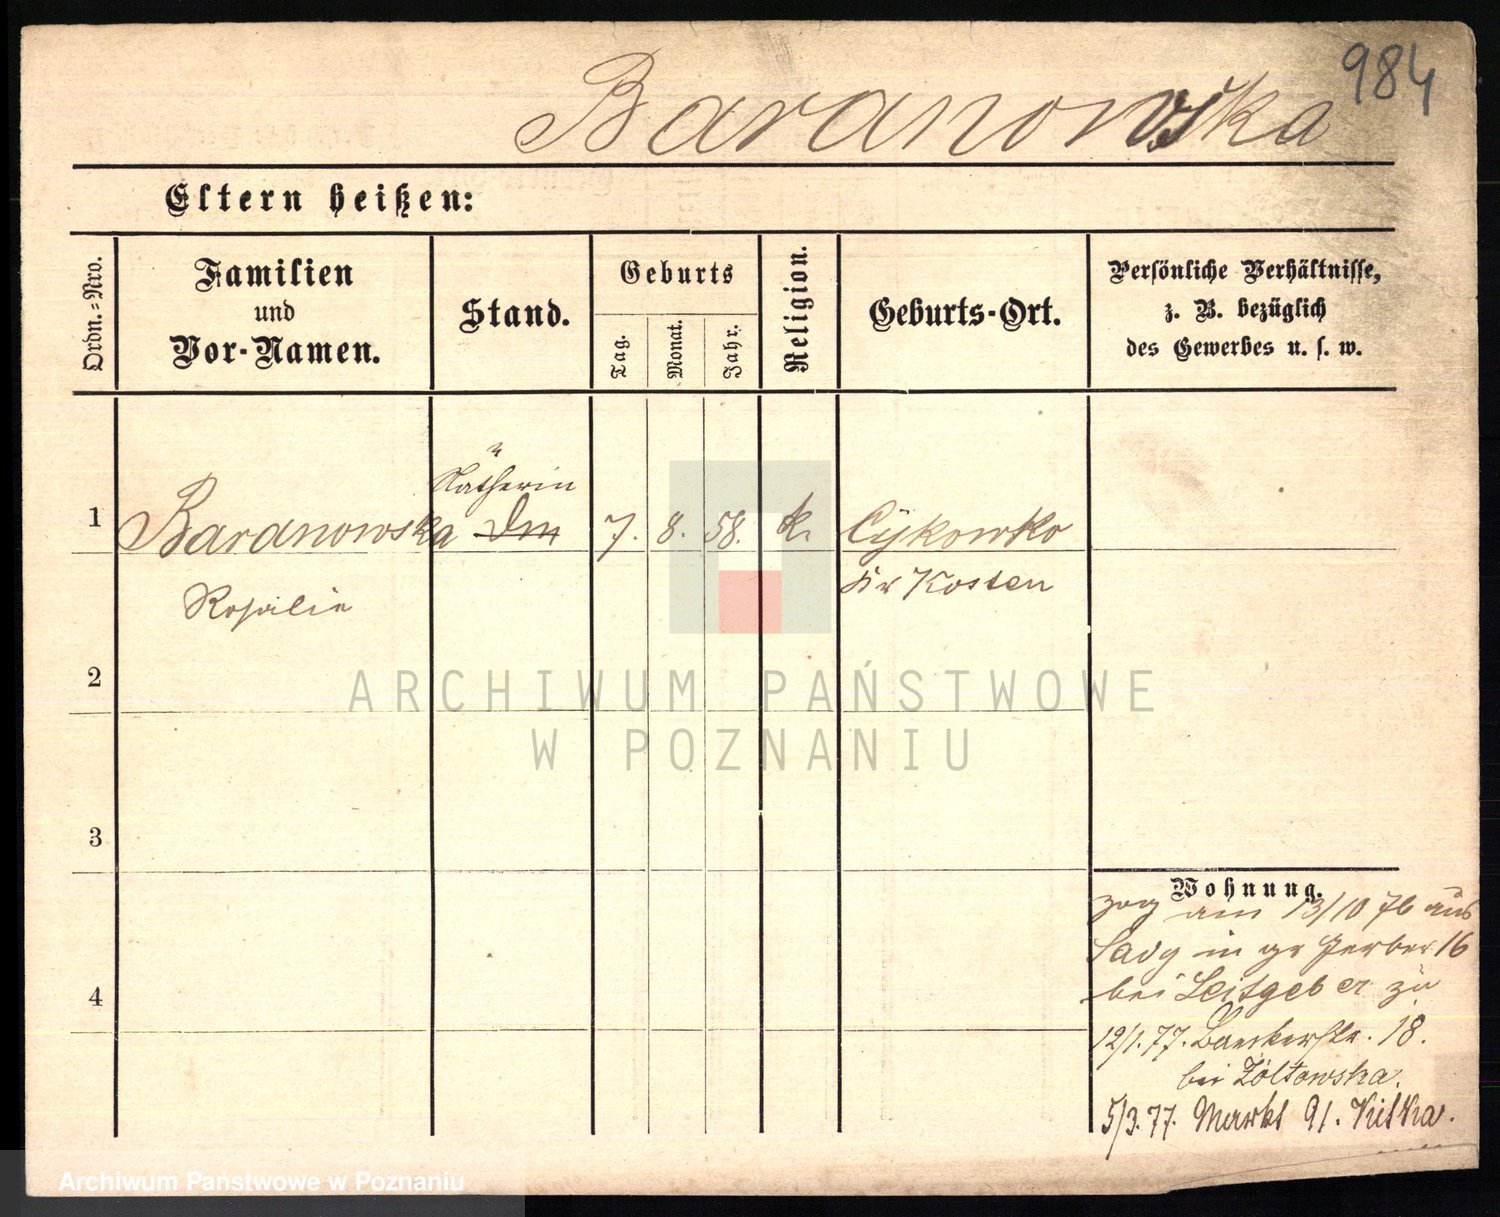 984
Baranowska
Eltern heißen:
Ordn.=Nro.
Familien
und
Vor-Namen.
Stand.
Geburts
Tag.
Monat.
Jahr.
Religion.
Geburts-Ort.
Persönliche Verhältnisse,
z. B. bezüglich
des Gewerbes u. s. w.
Nätherin
1 Baranowska Dm 7. 8. 58. k. Cykowko
Rosalie
Kr Kosten
2
3
4
Wohnung.
zog am 13/10 76 aus
Sady in gr Gerber 16
bei Leitgeber zu
12/1.77. Baeckerstr. 18.
bei Żółtowska.
5/3.77. Markt 91.
ARCHIWUM PAŃSTWOWE
W POZNANIU
Archiwum Państwowe w Poznaniu